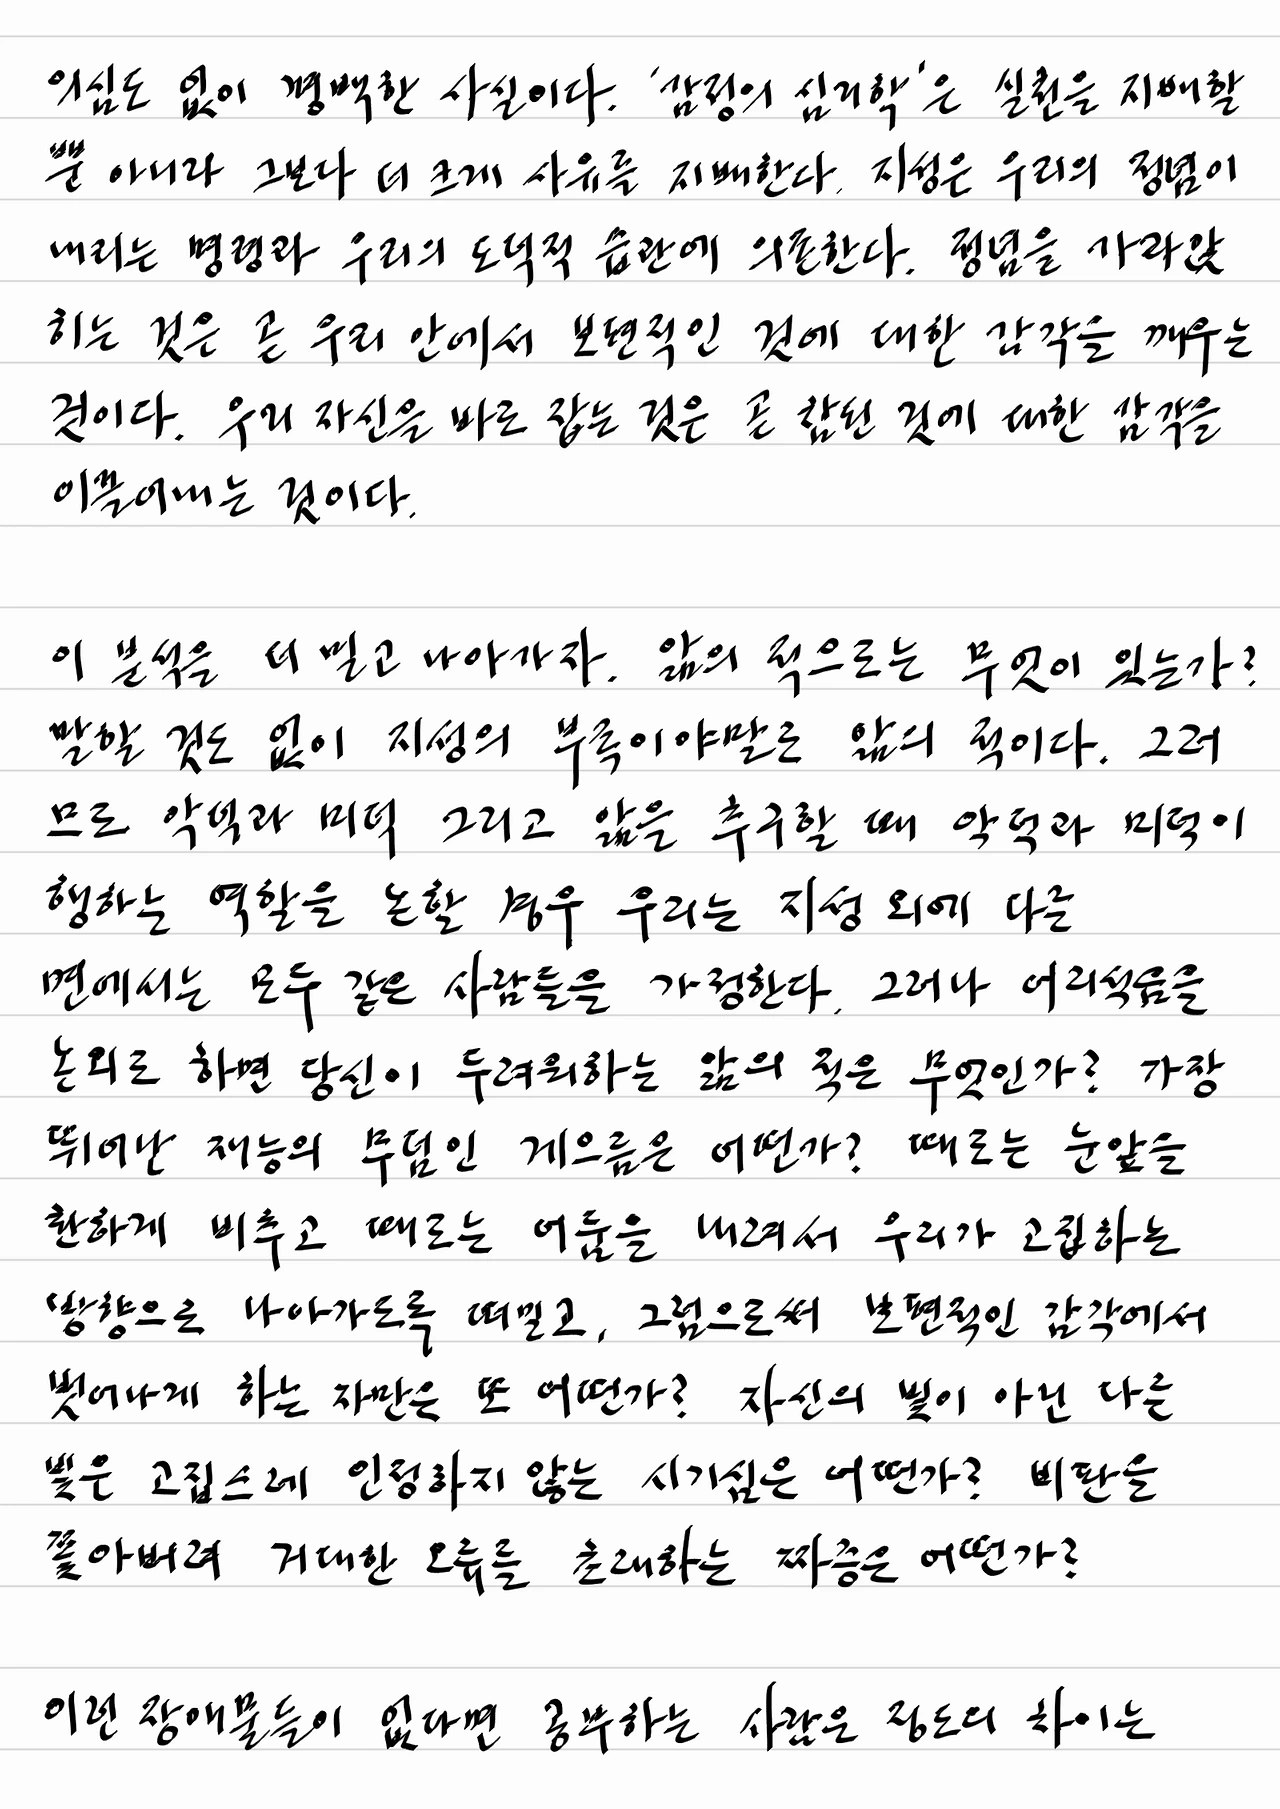 의심도 없이 명백한 사실이다. '감정의 심리학'은 실천을 지배할
뿐 아니라 그보다 더 크게 사유를 지배한다. 지성은 우리의 정념이
내리는 명령과 우리의 도덕적 습관에 의존한다. 정념을 가라앉
히는 것은 곧 우리 안에서 보편적인 것에 대한 감각을 깨우는
것이다. 우리 자신을 바로 잡는 것은 곧 참된 것에 대한 감각을
이끌어내는 것이다.
이 분석을 더 밀고 나아가자. 앎의 적으로는 무엇이 있는가?
말할 것도 없이 지성의 부족이야말로 앎의 적이다. 그러
므로 악덕과 미덕 그리고 앎을 추구할 때 악덕과 미덕이
행하는 역할을 논할 경우 우리는 지성 외에 다른
면에서는 모두 같은 사람들을 가정한다. 그러나 어리석음을
논외로 하면 당신이 두려워하는 앎의 적은 무엇인가? 가장
뛰어난 재능의 무덤인 게으름은 어떤가? 때로는 눈앞을
환하게 비추고 때로는 어둠을 내려서 우리가 고집하는
방향으로 나아가도록 떠밀고, 그럼으로써 보편적인 감각에서
벗어나게 하는 자만은 또 어떤가? 자신의 빛이 아닌 다른
빛은 고집스레 인정하지 않는 시기심은 어떤가? 비판을
꽃아버려 거대한 오류를 초래하는 짜증은 어떤가?
이런 장애물들이 없다면 공부하는 사람은 정도의 차이는